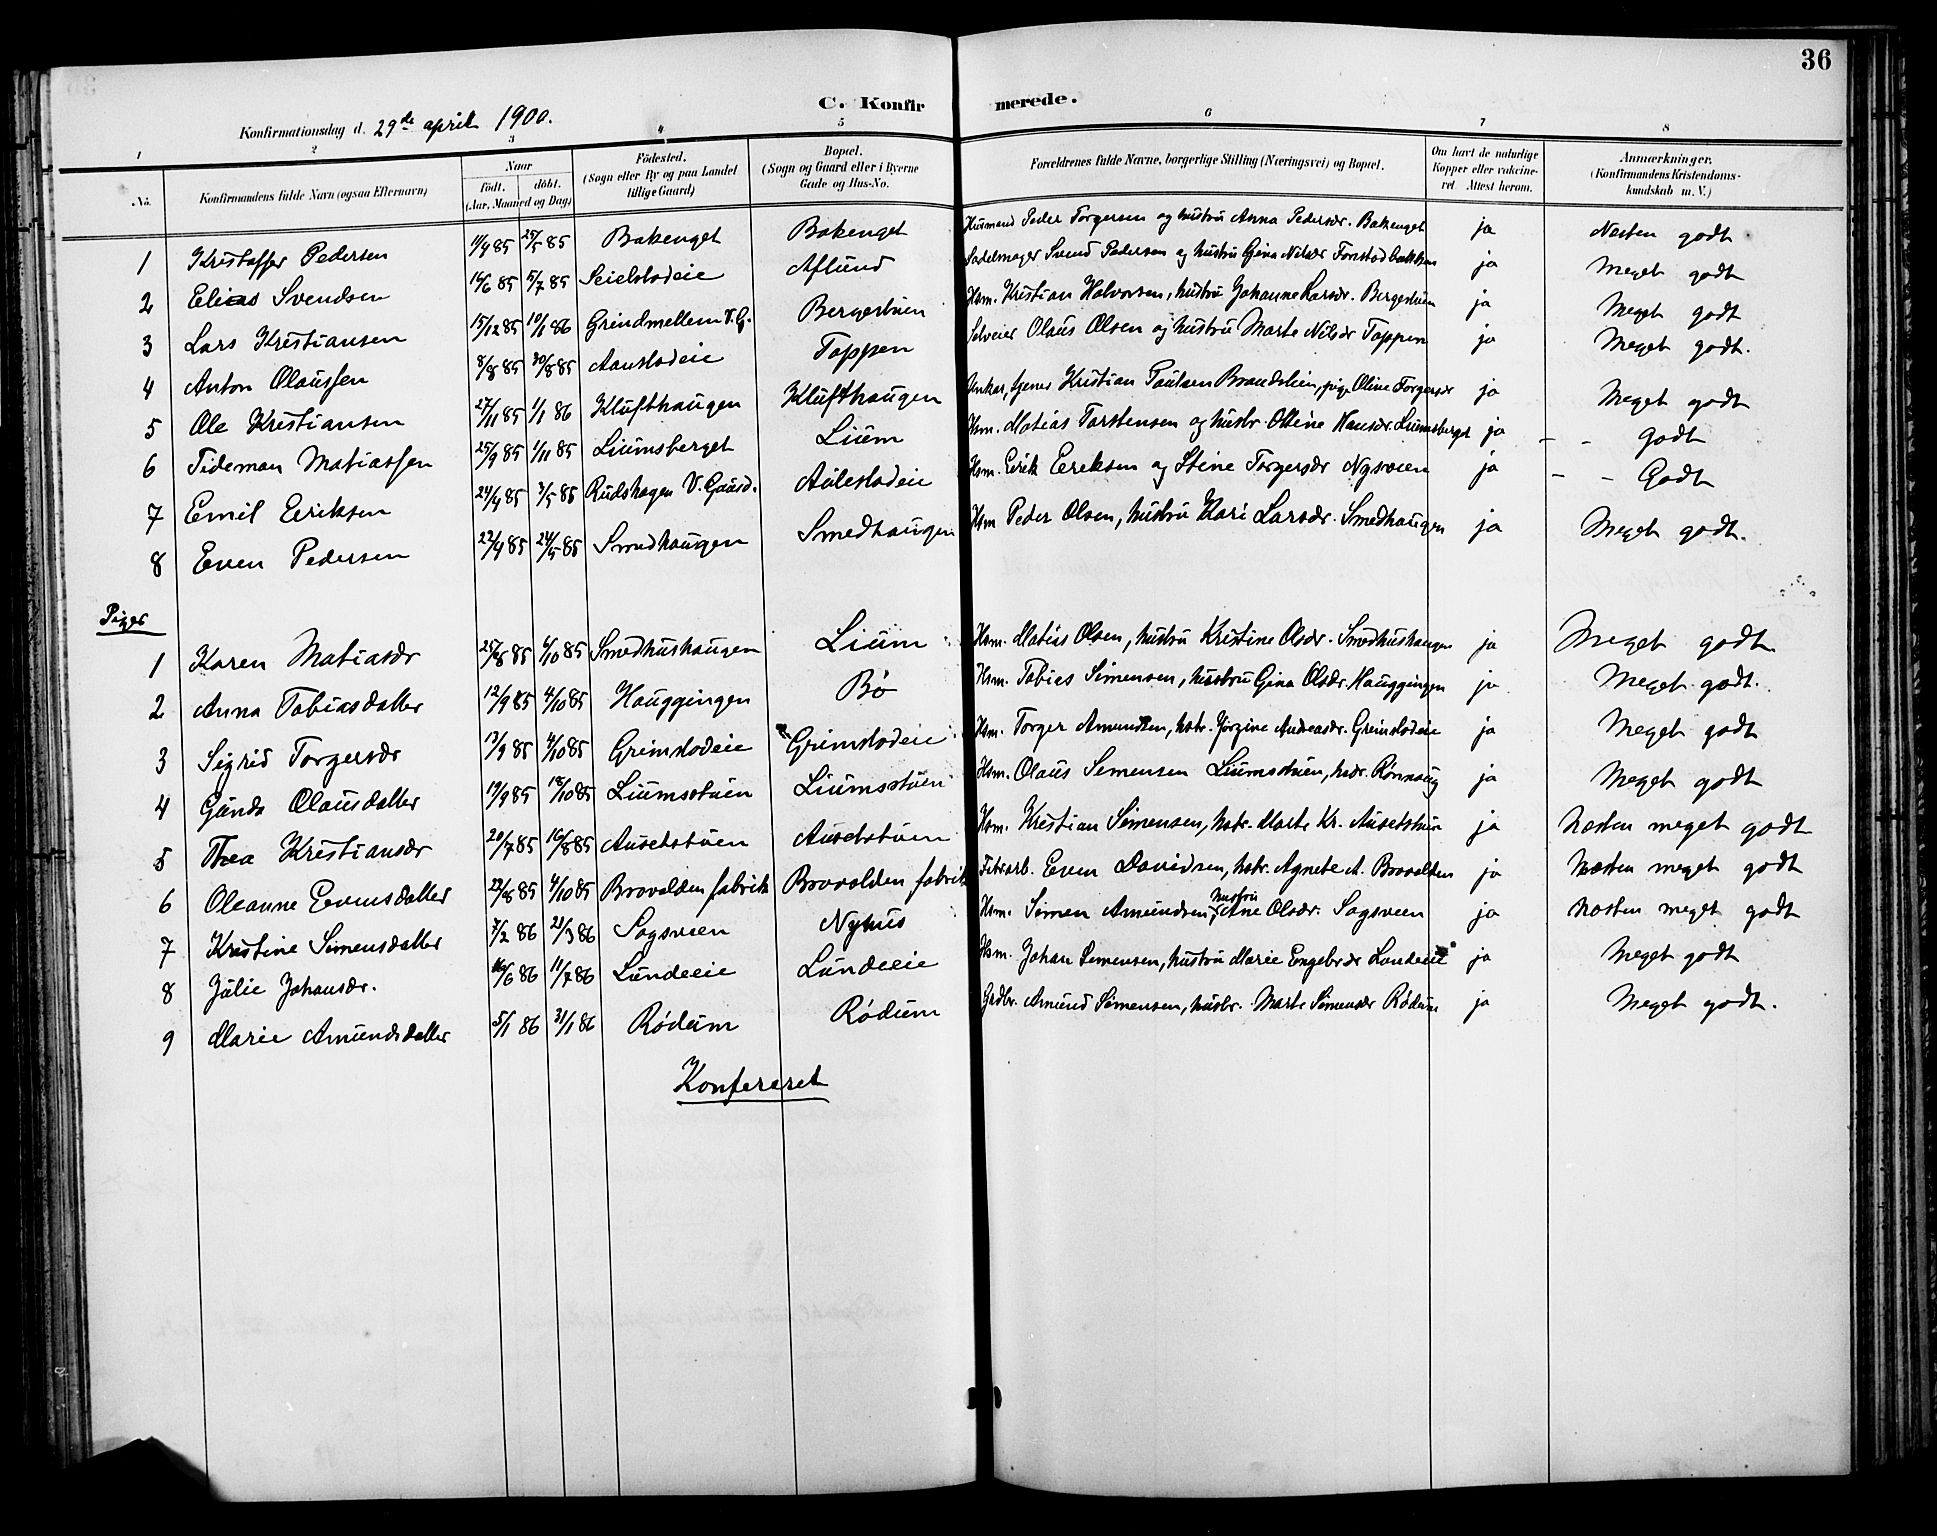 36
C. Konfirmerede.
Konfirmationsdag d. 29de april 1900.
1 2 3 4 5 6 7 8
No. Konfirmandens fulde Navn (ogsaa Efternavn) Naar født. døbt. (Aar, Maaned og Dag) Fødested. (Sogn eller By og paa Landet tillige Gaard) Bopæl. (Sogn og Gaard eller i Byerne Gade og Hus-No. Forældrenes fulde Navne, borgerlige Stilling (Næringsvei) og Bopæl. Om havt de naturlige Kopper eller vakcineret. Attest herom. Anmærkninger. (Konfirmandens Kristendomskundskab m. V.)
1 Kristoffer Pedersen 11/4 85 25/5 85 Bakenget Bakenget Husmand Peder Torgersen og hustru Anna Pedersdr. Bakenget ja Næsten godt
2 Elias Svendsen 14/6 85 5/7 85 Seielstadeie Aflund Sadelmager Svend Pedersen og hustru Gina Nilsdr Forrstadbakken ja Meget godt
3 Lars Kristiansen 15/12 85 10/1 86 Grindmellem V. G. Bergestuen Hsm. Kristian Halvorsen, hustru Johanne Larsdr. Bergestuen ja Meget godt
4 Anton Olaussen 8/8 85 30/8 85 Aanstadeie Toppen Selveier Olaus Olsen og hustru Marte Nilsdr Toppen ja Meget godt.
5 Ole Kristiansen 27/11 85 1/1 86 Klufthaugen Klufthaugen Unkar, tjener Kristian Paulsen Brandslien, pige Oline Torgersdr ja Meget godt
6 Tideman Matiassen 25/9 85 1/11 85 Liumsberget Lium Hsm. Matias Torstensen og hustr. Oline Hansdr. Liumsberget ja - - Godt
7 Emil Eriksen 24/4 85 3/5 85 Rudshagen V. Gausd. Aulestadeie Hsm. Erik Eriksen og Stine Torgersdr Nysveen ja - - Godt
8 Even Pedersen 22/4 85 24/5 85 Smedhaugen Smedhaugen Hsm Peder Olsen, hustru Kari Larsdr. Smedhaugen ja Meget godt.
Piger
1 Karen Matiasdr 25/8 85 4/10 85 Smedhushaugen Lium Hsm. Matias Olsen, hustru Kristine Olsdr. Smedhushaugen ja Meget godt
2 Anna Tobiasdatter 12/9 85 4/10 85 Hauggingen Bø Hsm. Tobias Simensen, hustru Gina Olsdr. Hauggingen ja Meget godt.
3 Sigrid Torgersdr 13/9 85 4/10 85 Grimstadeie Grimstadeie Hsm. Torger Amundsen, hstr. Jorgine Andreasdr. Grimstadeie ja Meget godt
4 Gunda Olausdatter 19/9 85 18/10 85 Liumsstuen Liumsstuen Hsm. Olaus Simensen Liumsstuen, Rønnaug ja Meget godt
5 Thea Kristiansdr 20/7 85 16/8 85 Ausetstuen Ausetstuen Hsm. Kristian Simensen, hstr. Marte Kr. Ausetstuen ja Næsten meget godt
6 Oleanne Evensdatter 22/8 85 4/10 85 Brovolden fabrik Brovolden fabrik Fabrarb. Even Davidsen, hstr. Agnete A. Brovolden ja Næsten meget godt
7 Kristine Simensdatter 7/2 86 21/3 86 Sagsveen Nyhus Hsm. Simen Amundsen hustru Ane Olsdr. Sagsveen ja Næsten meget godt
8 Julie Johansdr. 16/6 86 11/7 86 Lundeeie Lundeeie Hsm. Johan Simensen, hustru Marie Engebrdr Lundeeie ja Meget godt
9 Marie Amundsdatter 5/1 86 31/1 86 Rødum Rødum Grdbr. Amund Simensen, husbr. Marte Simensdr Rødum ja Meget godt.
Konfereret